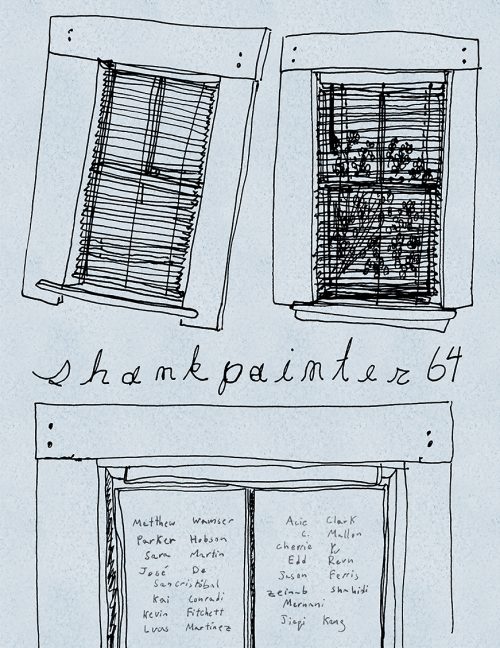 shankpainter 64
Matthew Wamser
Parker Hobson
Sara Martin
José De
Sancristóbal
Kai Conradi
Kevin Fitchett
Lucas Martínez
Acie Clark
C. Mallon
Cherrie Yu
Edd Ravn
Jason Ferris
Zeinab Shahidi
Marnani
Jiaqi Kang